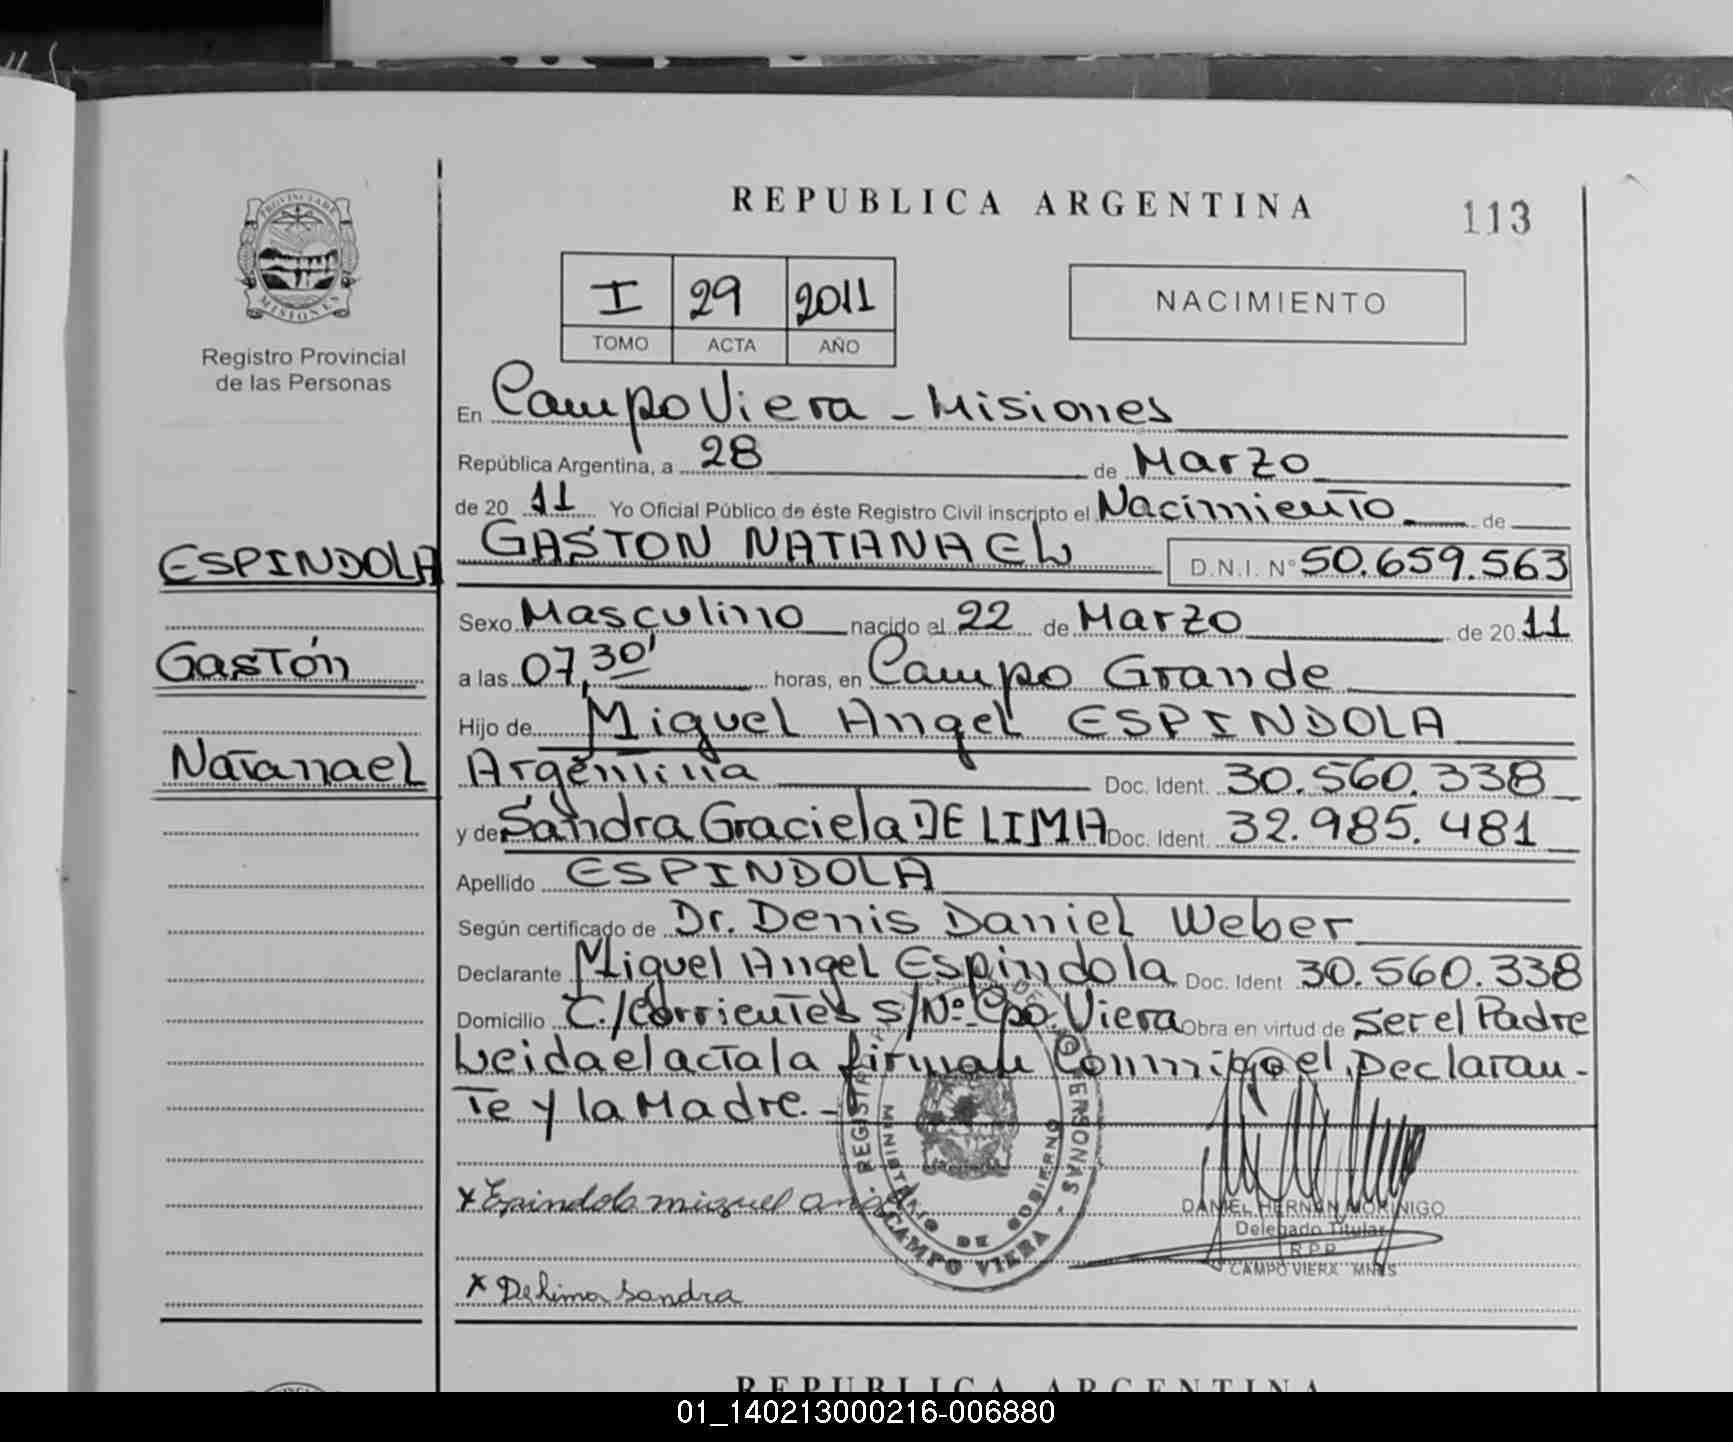 REPUBLICA ARGENTINA
113
PROVINCIA DE
MISIONES
Registro Provincial
de las Personas
I 29 2011
TOMO ACTA AÑO
NACIMIENTO
En Campo Viera - Misiones
República Argentina, a 28 de Marzo
de 20 11 Yo Oficial Público de éste Registro Civil inscripto el Nacimiento de
GASTON NATANAEL D.N.I. N° 50.659.563
ESPINDOLA
Gastón
Natanael
Sexo Masculino nacido el 22 de Marzo de 20 11
a las 07,30' horas, en Campo Grande
Hijo de Miguel Angel ESPINDOLA
Argentina Doc. Ident. 30.560.338
y de Sandra Graciela DE LIMA Doc. Ident. 32.985.481
Apellido ESPINDOLA
Según certificado de Dr. Denis Daniel Weber
Declarante Miguel Angel Espindola Doc. Ident 30.560.338
Domicilio C./Corrientes S/Nº Cpo. Viera Obra en virtud de Ser el Padre
Leida el acta la firman Conmigo el Declaran-
te y la Madre.-
x Espindola miguel
x De lima Sandra
MINISTERIO DE GOBIERNO
CAMPO VIERA
DANIEL HERNAN MORINIGO
Delegado Titular
R.P.P.
CAMPO VIERA MNES
REPUBLICA ARGENTINA
01_140213000216-006880